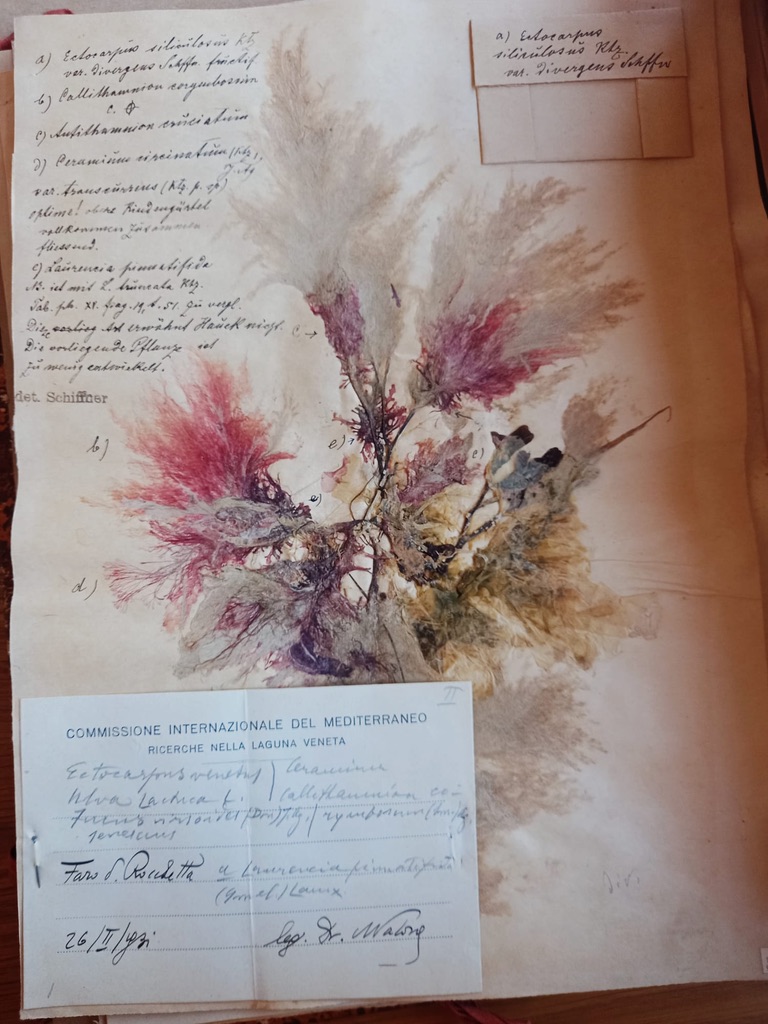 a) Ectocarpus siliculosus Ktz
var. divergens Schffn. fructif
b) Callithamnion corymbosum
c. ⊕
c) Antithamnion cruciatum
d) Ceramium circinatum (Ktz.)
J. Ag
var. transcurrens (Ktz. p. sp)
optime! ohne Rindengürtel
vollkommen zusammen
fliessend.
e) Laurencia pinnatifida
ist mit L. truncata Ktz.
Tab. ph. XV. t. 51 zu vergl.
Die vorlieg Art erwähnt Hauck nicht.
Die vorliegende Pflanze ist
zu wenig entwickelt.
det. Schiffner
a) Ectocarpus
siliculosus Ktz.
var. divergens Schffn
c →
b)
e)
e)
c)
d)
II
COMMISSIONE INTERNAZIONALE DEL MEDITERRANEO
RICERCHE NELLA LAGUNA VENETA
Ectocarpus venetus / Ceramium
Ulva Lactuca L. / Callithamnion co-
Fucus virsoides (Don) J. Ag. / rymbosum
Faro d. Rocchetta a Laurencia pinnatifida
(Gmel) Lamx.
26/II/931 leg. Dr.
div.